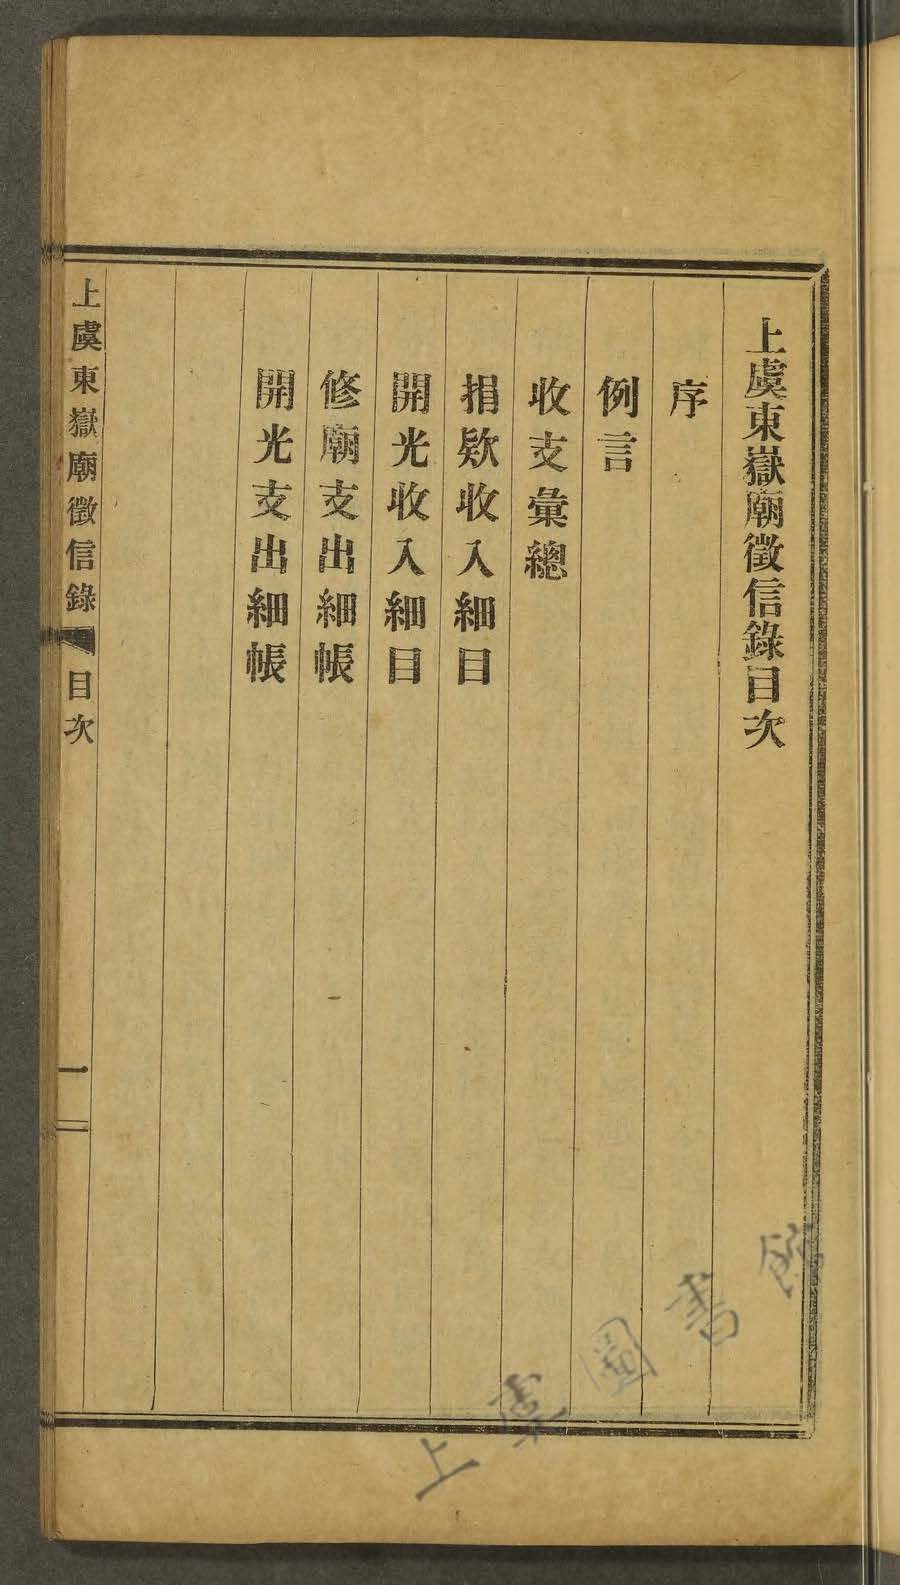 上虞東嶽廟徵信錄目次
序
例言
收支彙總
捐欵收入細目
開光收入細目
修廟支出細帳
開光支出細帳
上虞東嶽廟徵信錄 目次 一
上虞圖書館